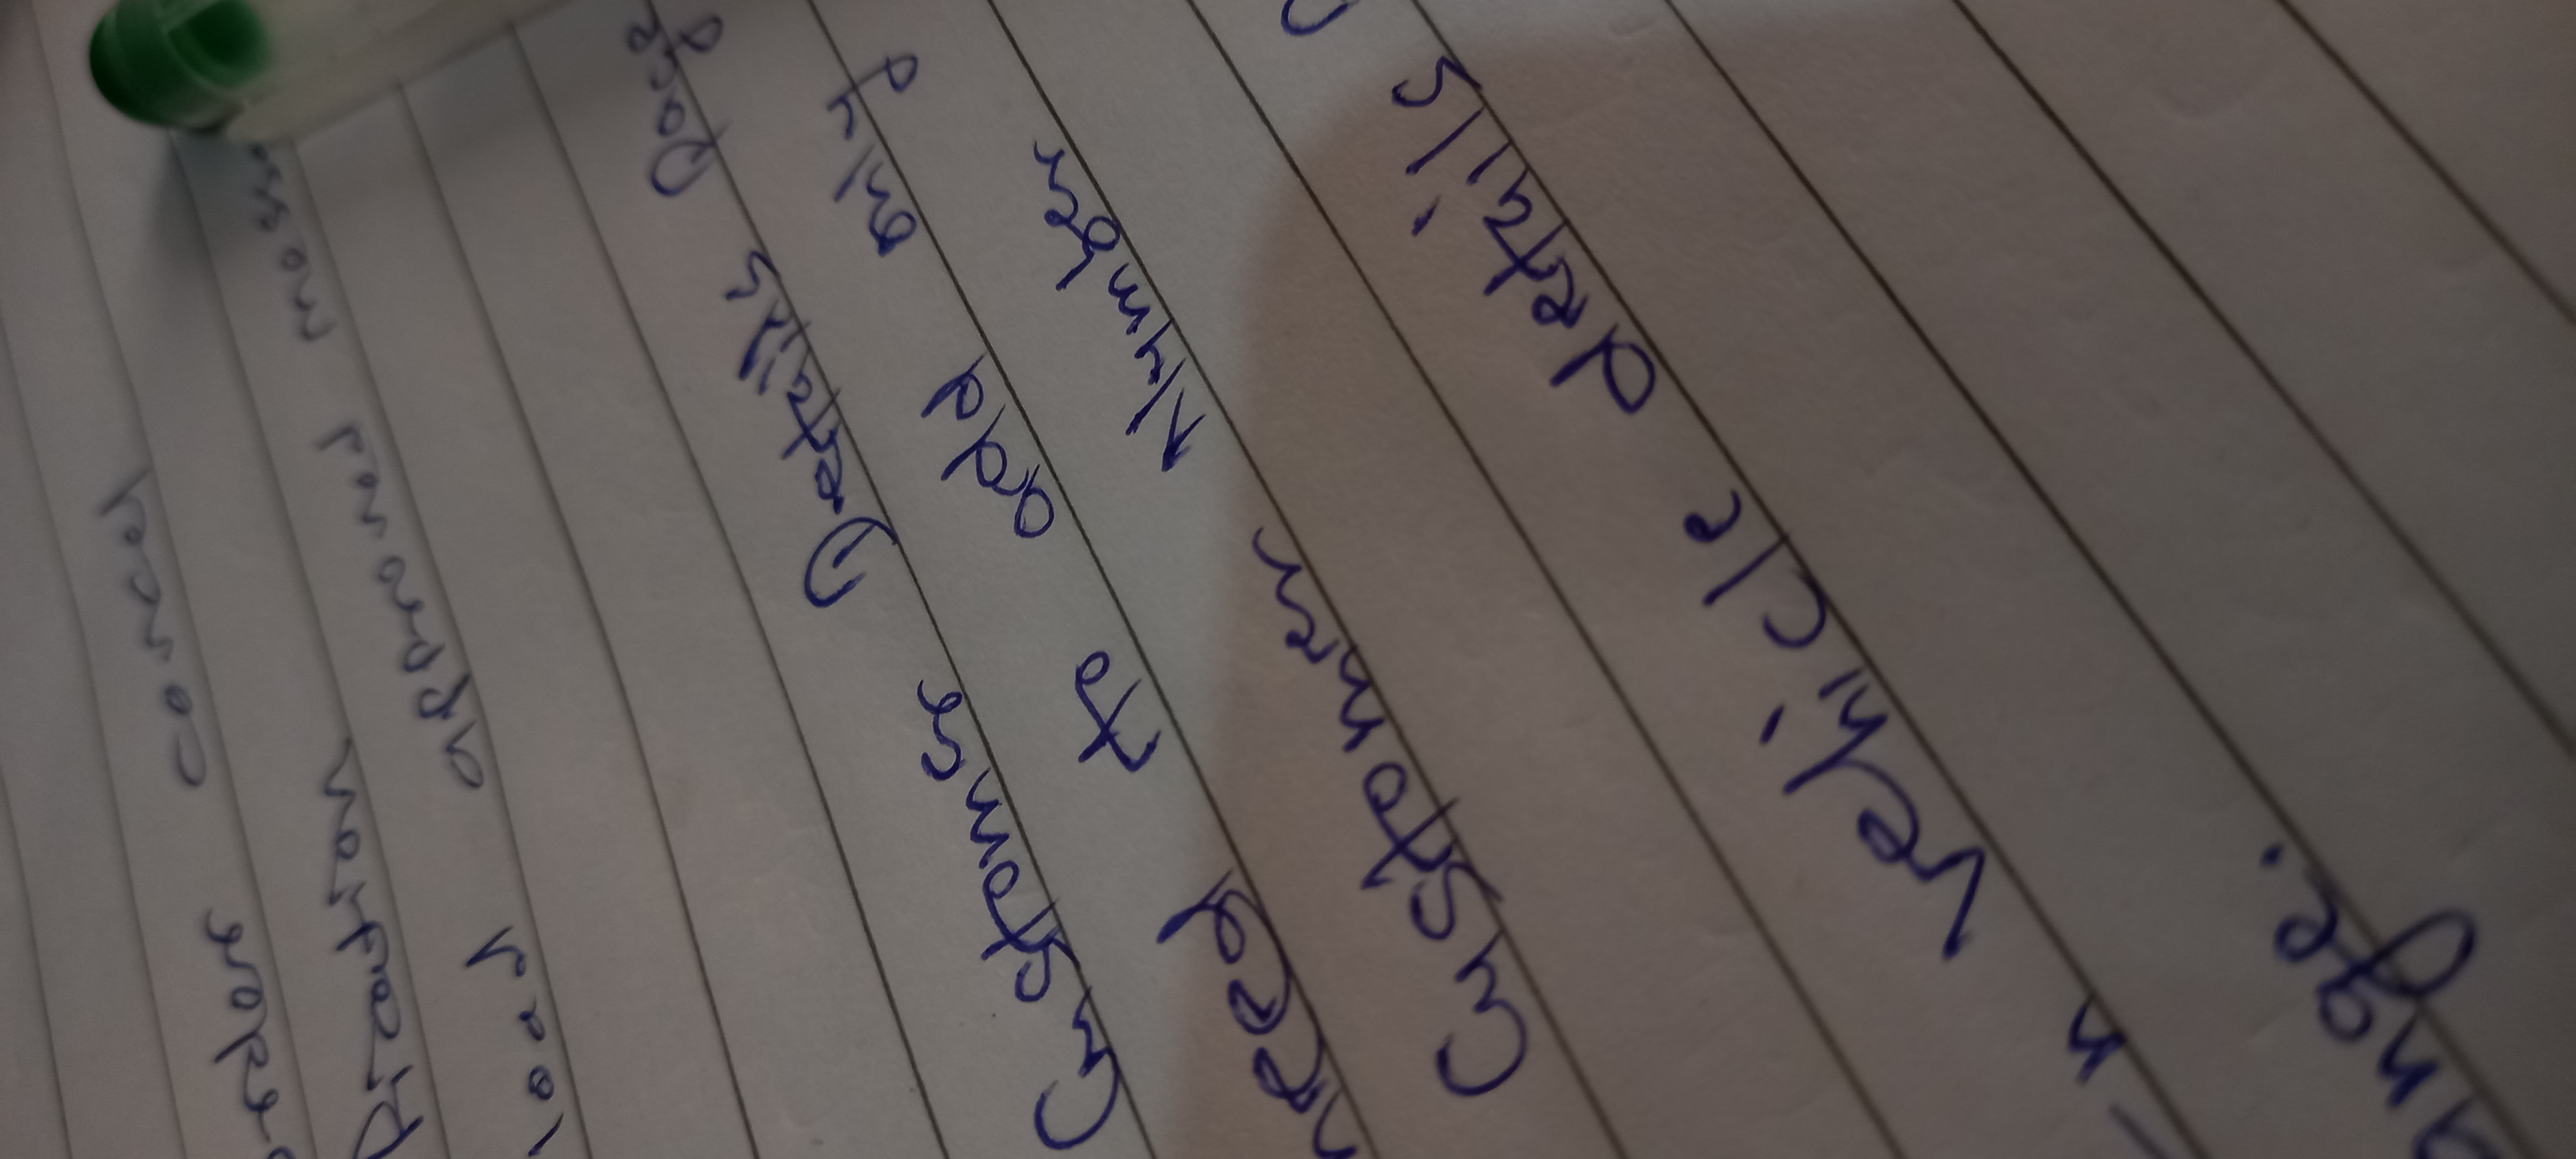 order cancel
fication
load approved messa
Customer Details Page
need to add only
Customer Number
n vehicle details
ange.